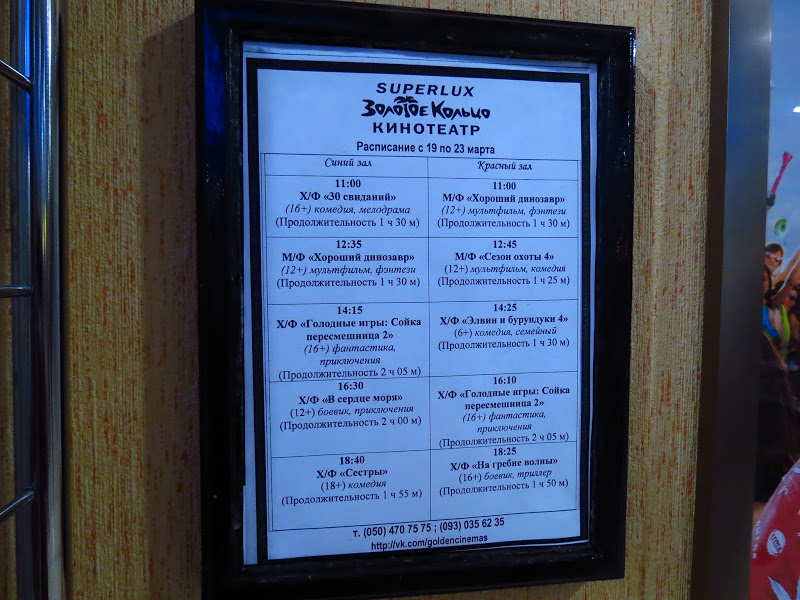 SUPERLUX
Золотое Кольцо
КИНОТЕАТР
Расписание с 19 по 23 марта
Синий зал
11:00
Х/Ф «30 свиданий»
(16+) комедия, мелодрама
(Продолжительность 1 ч 30 м)
12:35
М/Ф «Хороший динозавр»
(12+) мультфильм, фэнтези
(Продолжительность 1 ч 30 м)
14:15
Х/Ф «Голодные игры: Сойка
пересмешница 2»
(16+) фантастика,
приключения
(Продолжительность 2 ч 05 м)
16:30
Х/Ф «В сердце моря»
(12+) боевик, приключения
(Продолжительность 2 ч 00 м)
18:40
Х/Ф «Сестры»
(18+) комедия
(Продолжительность 1 ч 55 м)
Красный зал
11:00
М/Ф «Хороший динозавр»
(12+) мультфильм, фэнтези
(Продолжительность 1 ч 30 м)
12:45
М/Ф «Сезон охоты 4»
(12+) мультфильм, комедия
(Продолжительность 1 ч 25 м)
14:25
Х/Ф «Элвин и бурундуки 4»
(6+) комедия, семейный
(Продолжительность 1 ч 30 м)
16:10
Х/Ф «Голодные игры: Сойка
пересмешница 2»
(16+) фантастика,
приключения
(Продолжительность 2 ч 05 м)
18:25
Х/Ф «На гребне волны»
(16+) боевик, триллер
(Продолжительность 1 ч 50 м)
т. (050) 470 75 75 ; (093) 035 62 35
http://vk.com/goldencinemas